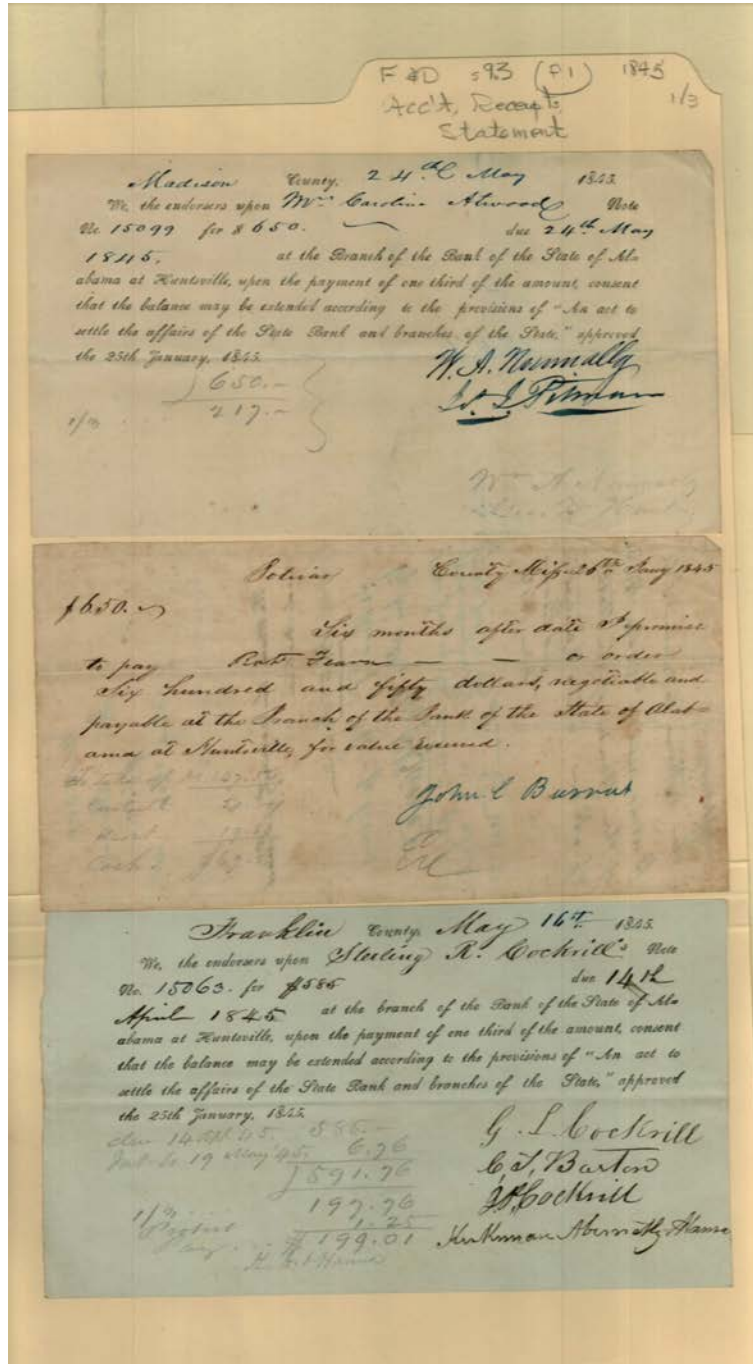 F &D 593 (P1) 1845
1/3
Acc't, Receipts,
Statement
Madison County, 24th May 1845.
We, the endorsers upon Mrs Caroline Atwood Note
No. 15099 for $650. due 24th May
1845. at the Branch of the Bank of the State of Ala
abama at Huntsville, upon the payment of one third of the amount, consent
that the balance may be extended according to the provisions of "An act to
settle the affairs of the State Bank and branches of the State," approved
the 25th January, 1845.
W. A. Nunnally
650.-
1/3 217.-
County Miss 26th Jany 1845
$650.
Six months after date I promise
to pay Robt Fearn — — or order
Six hundred and fifty dollars, negotiable and
payable at the Branch of the Bank of the State of Alab=
ama at Huntsville, for value received.
John C
Franklin County, May 16th 1845.
We, the endorsers upon Sterling R. Cockrill's Note
No. 15063. for $585 due 14th
April 1845 at the branch of the Bank of the State of Ala
abama at Huntsville, upon the payment of one third of the amount, consent
that the balance may be extended according to the provisions of "An act to
settle the affairs of the State Bank and branches of the State," approved
the 25th January, 1845.
G. L. Cockrill
due 14 Apl 45. 585.-
Int. to 19 May 45. 6.76
591.76
C. T. Barton
197.76
Cockrill
1/3
Protest 1.25
$199.01
Kirkman Abernathy Hanna